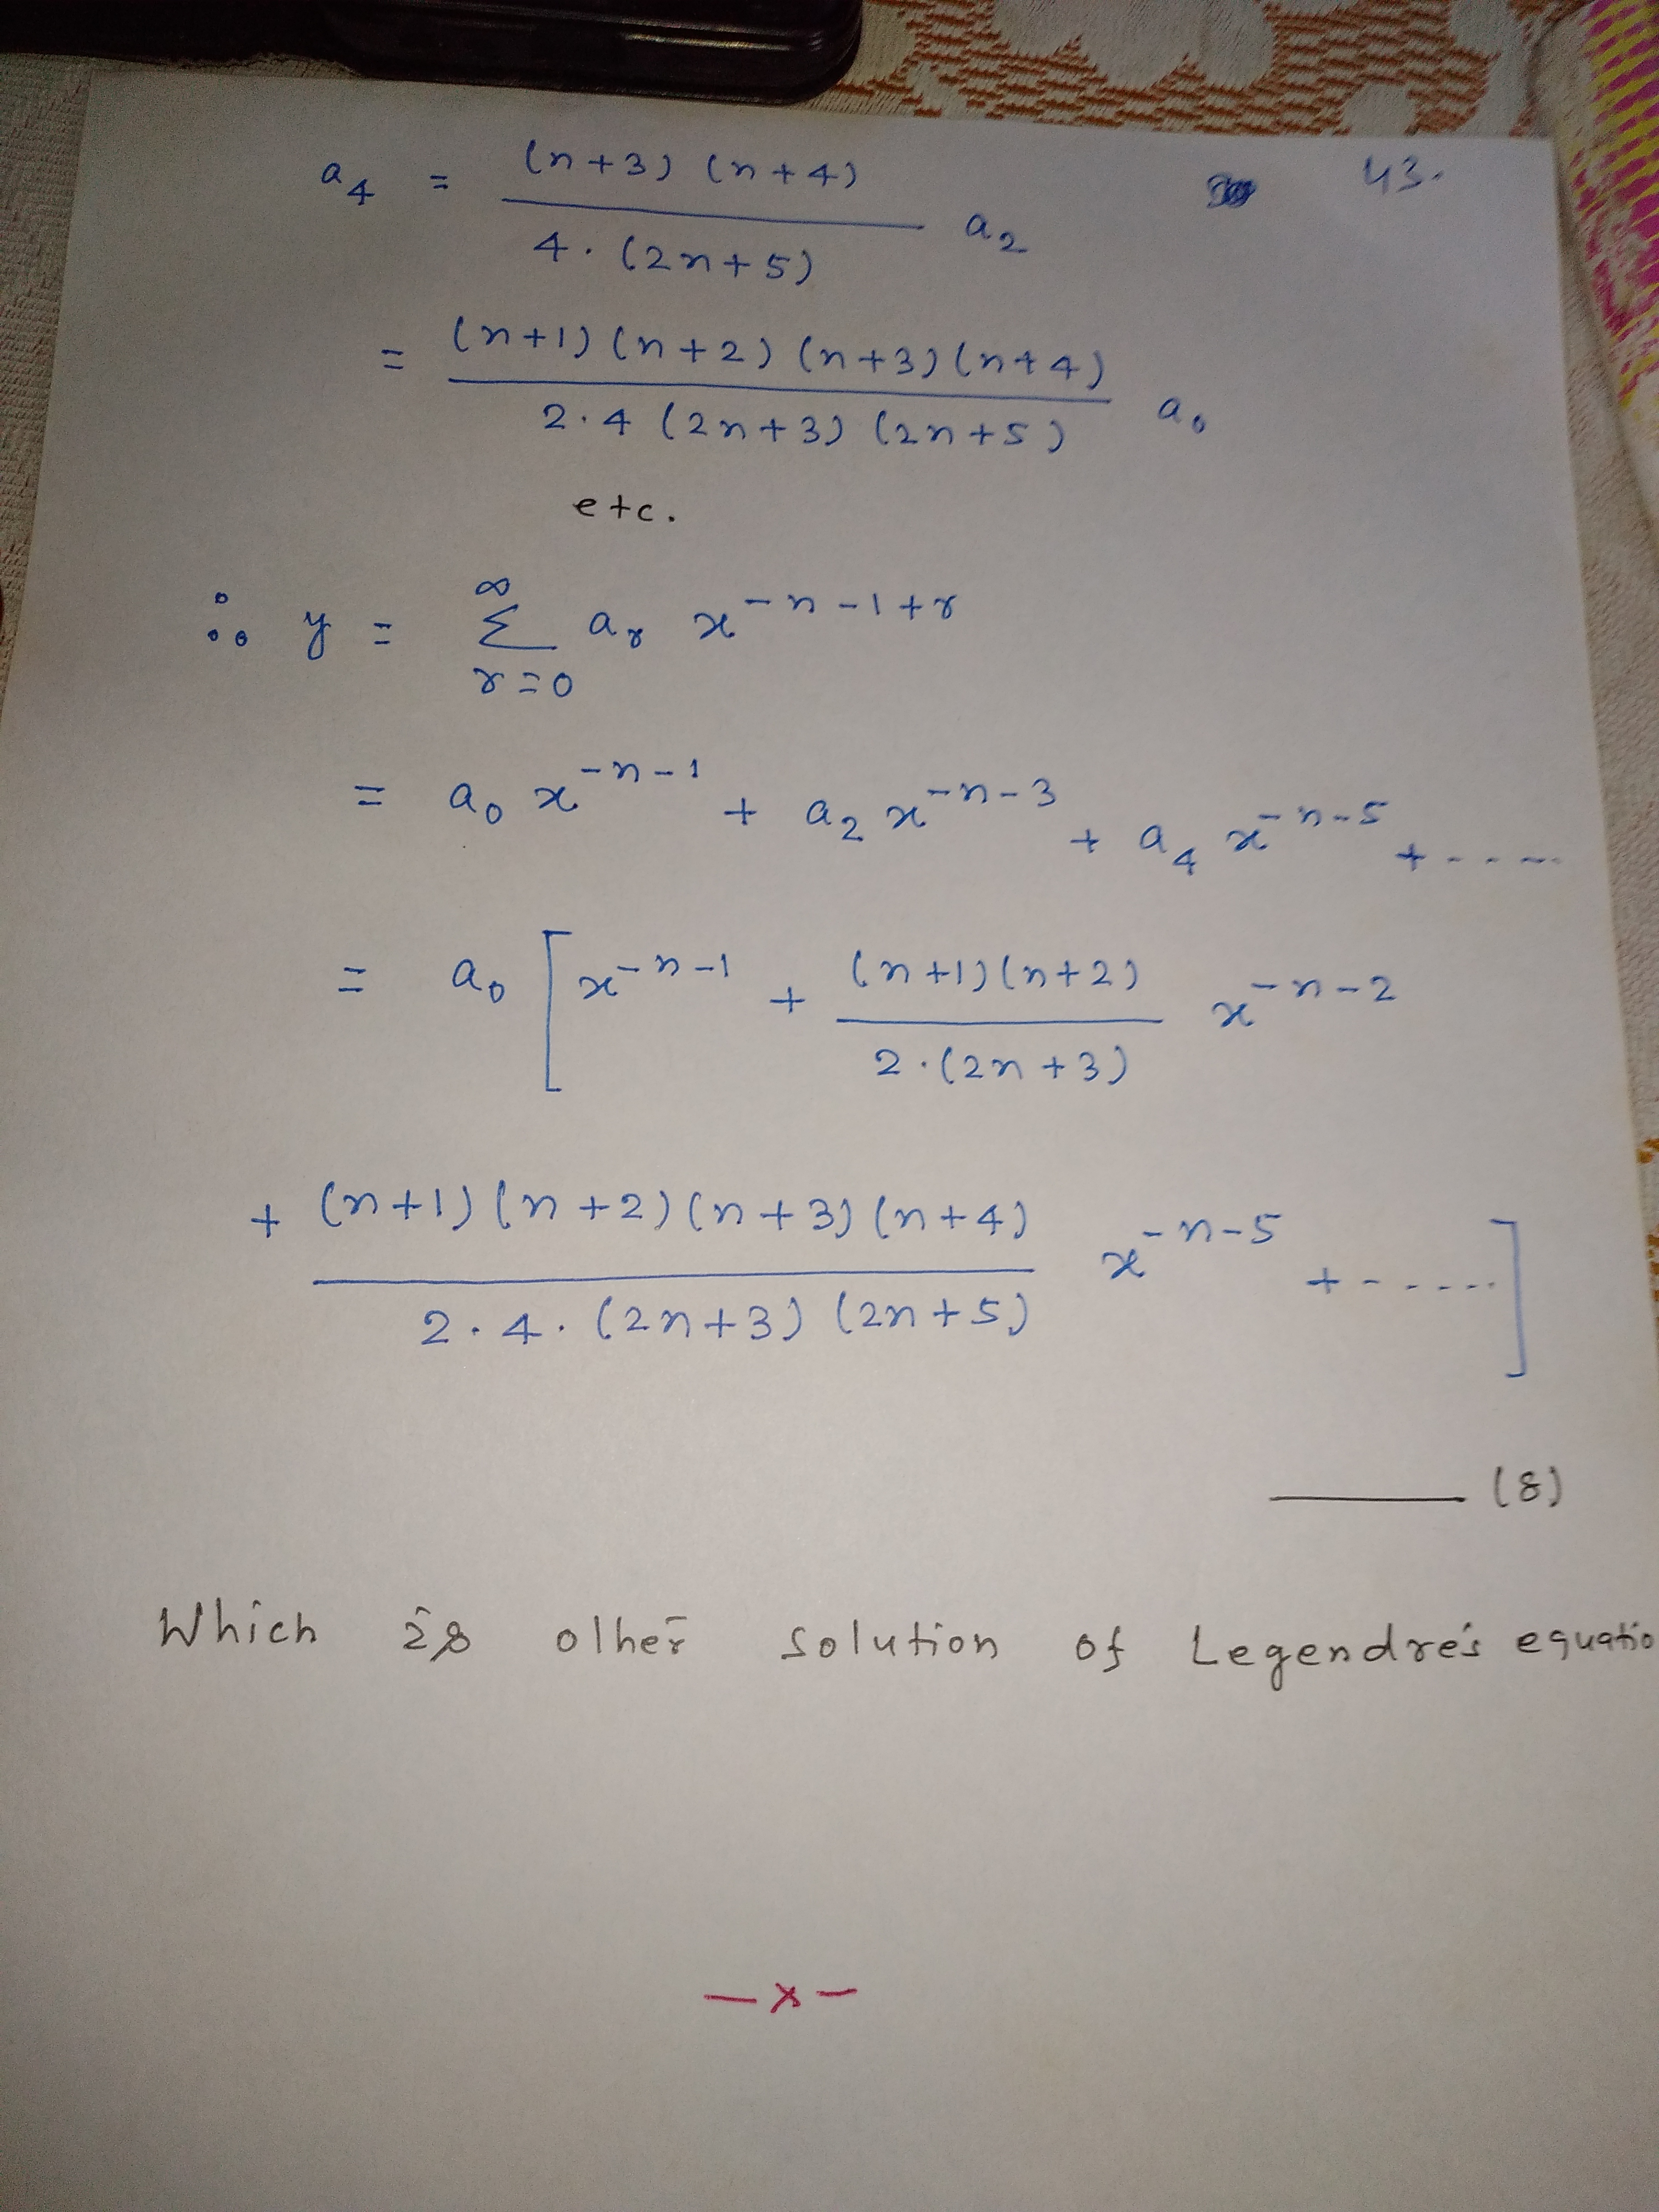 43.
a₄ = (n+3) (n+4) / 4 · (2n+5) a₂
= (n+1) (n+2) (n+3) (n+4) / 2·4 (2n+3) (2n+5) a₀
etc.
∴ y = ∞ Σ r=0 aᵣ x^{-n-1+r}
= a₀ x^{-n-1} + a₂ x^{-n-3} + a₄ x^{-n-5} + -----
= a₀ [ x^{-n-1} + (n+1)(n+2) / 2·(2n+3) x^{-n-2}
+ (n+1)(n+2)(n+3)(n+4) / 2·4·(2n+3)(2n+5) x^{-n-5} + ------ ]
——— (8)
Which is other solution of Legendre's equatio
— x —